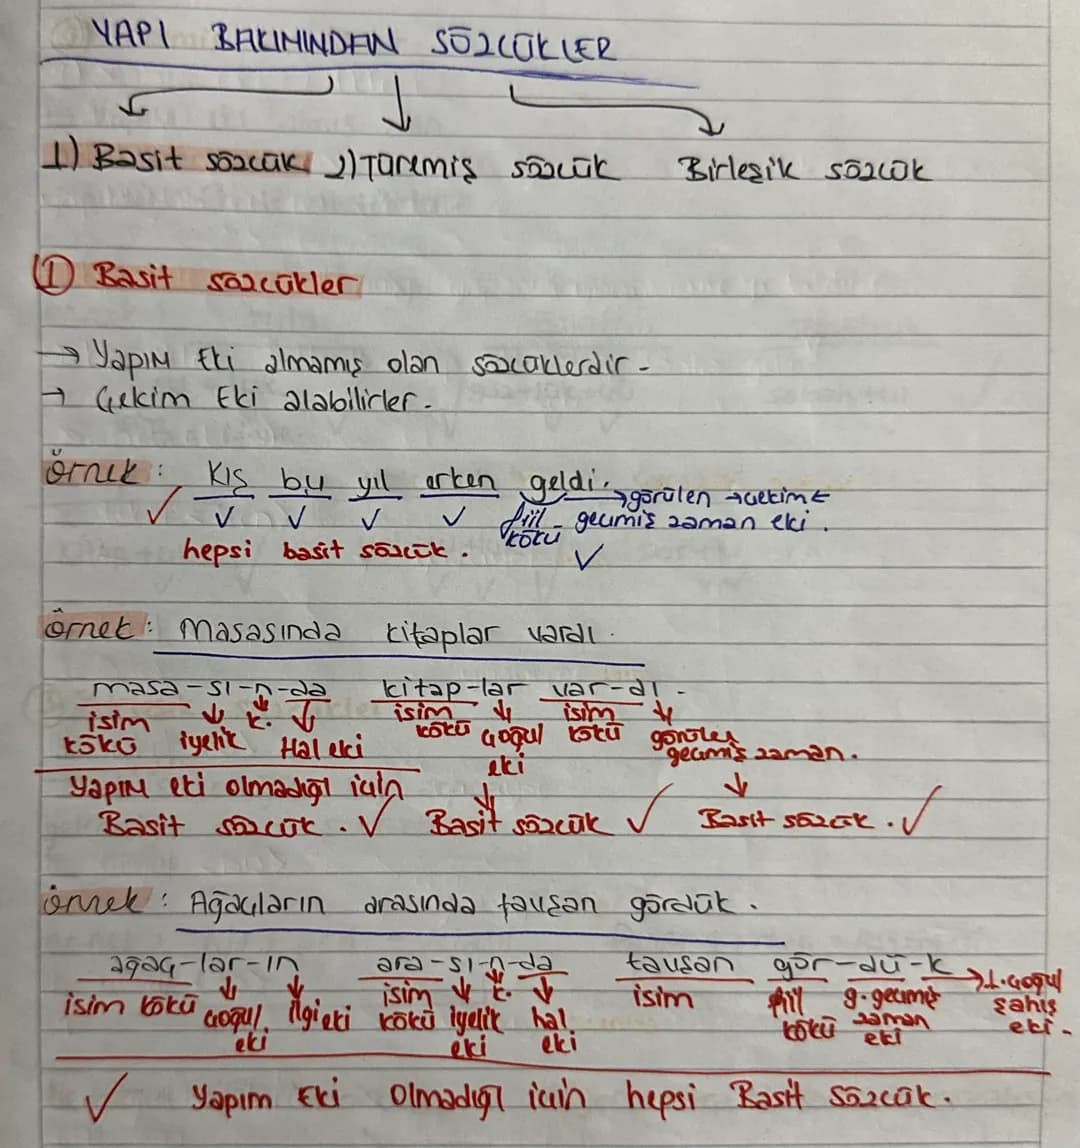 YAPI BAKIMINDAN SÖZCÜKLER
1) Basit sözcük 2) Türemiş sözcük Birleşik sözcük
① Basit sözcükler
→ Yapım Eki almamış olan sözcüklerdir.
→ Çekim Eki alabilirler.
Örnek: Kış bu yıl erken geldi. →görülen →çekim E
✓ ✓ ✓ ✓ ✓ fiil geçmiş zaman eki.
hepsi basit sözcük. kökü ✓
örnek: Masasında kitaplar vardı.
masa-sı-n-da kitap-lar var-dı.
isim ↓ k. ↓ isim ↓ isim ↓
kökü iyelik Hal eki kökü çoğul kökü görülen
eki geçmiş zaman.
Yapım eki olmadığı için ↓ ↓
Basit sözcük. ✓ Basit sözcük ✓ Basit sözcük. ✓
örnek: Ağaçların arasında tavşan gördük.
ağaç-lar-ın ara-sı-n-da tavşan gör-dü-k →1.çoğul
isim kökü ↓ ↓ isim ↓ k. ↓ isim fiil g.geçmiş şahıs
çoğul ilgi eki kökü iyelik hal kökü zaman eki.
eki eki eki eki
✓ Yapım Eki Olmadığı için hepsi Basit Sözcük.